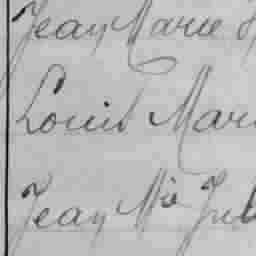 Jean Marie
Louis Mari
Jean Mie Jul